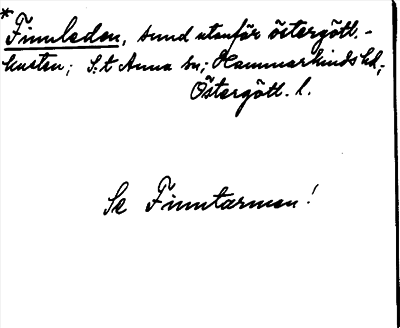 * Finnleden, sund utanför östergötl.-
kusten; S:t Anna sn; Hammarkinds hd,;
Östergötl. l.
Se Finntarmen!